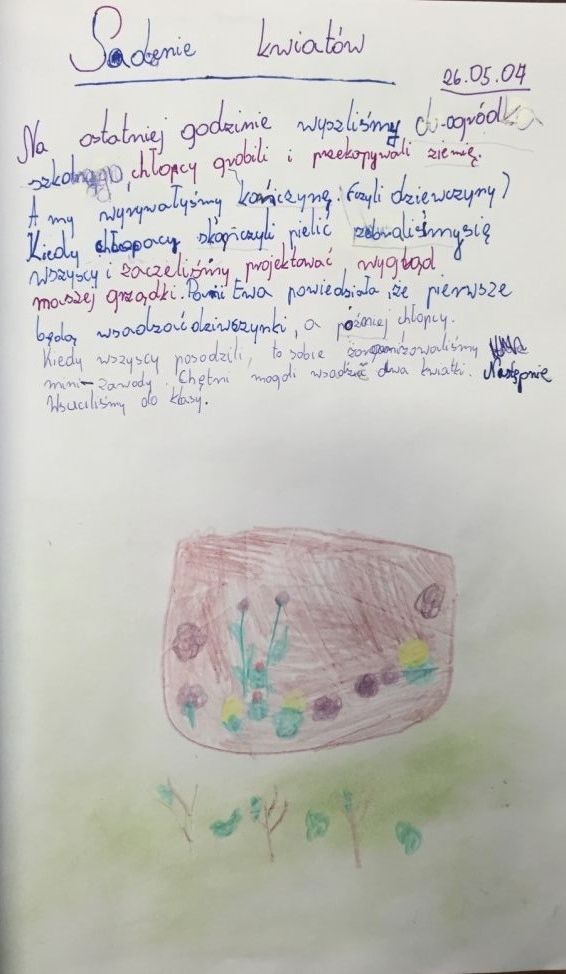 Sadzenie kwiatów
26.05.04
Na ostatniej godzinie wyszliśmy do ogródka
szkolnego, chłopcy grobili i przekopywali ziemię.
A my wyrywałyśmy kończynę. (czyli dziewczyny)
Kiedy chłopacy skończyli pielić zebraliśmysię
wszyscy i zaczeliśmy projektować wygląd
naszej grządki. Pani Ewa powiedziała, że pierwsze
będą wsadzać dziewczynki, a później chłopcy.
Kiedy wszyscy posadzili, to sobie zorganizowaliśmy
mini-zawody. Chętni mogli wsadzić dwa kwiatki. Następnie
Wruciliśmy do klasy.